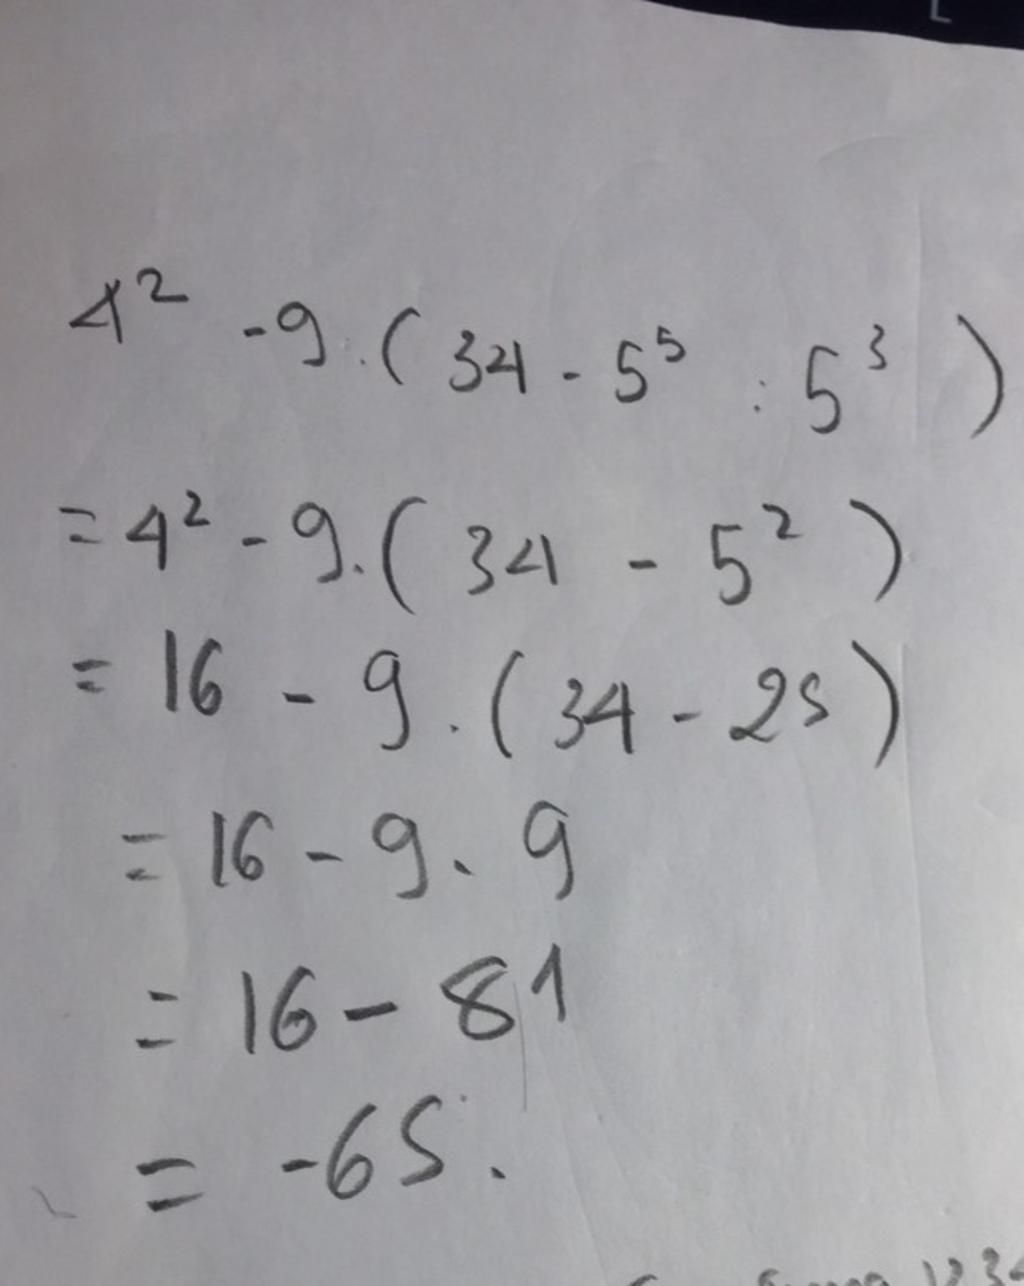 4² - 9 . ( 34 - 5⁵ : 5³ )
= 4² - 9 . ( 34 - 5² )
= 16 - 9 . ( 34 - 25 )
= 16 - 9 . 9
= 16 - 81
= -65 .